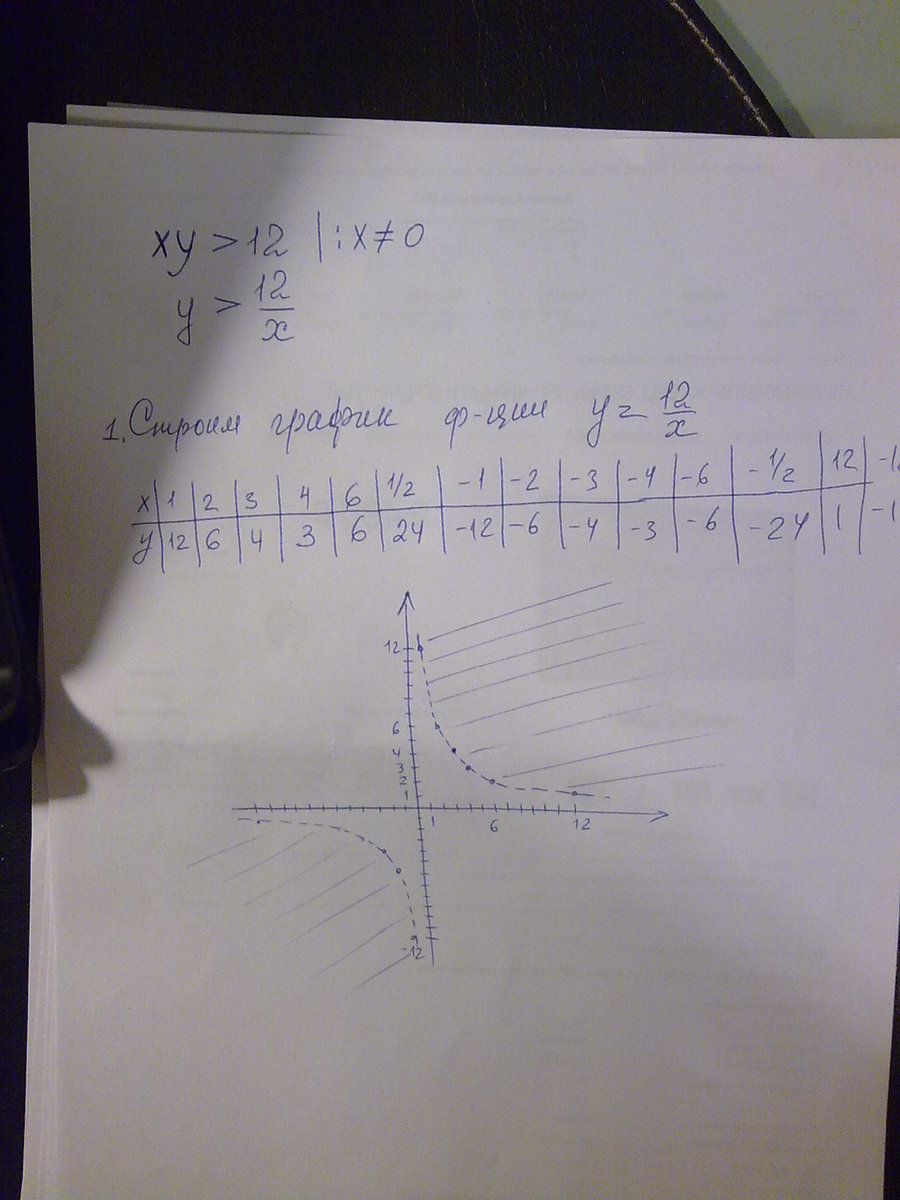 xy > 12 | : x ≠ 0
y > 12/x
1. Строим график ф-ции y = 12/x
x | 1 | 2 | 3 | 4 | 6 | 1/2 | -1 | -2 | -3 | -4 | -6 | -1/2 | 12 | -1
y | 12 | 6 | 4 | 3 | 6 | 24 | -12 | -6 | -4 | -3 | -6 | -24 | 1 | -1
12
6
4
3
2
1
1 6 12
-12